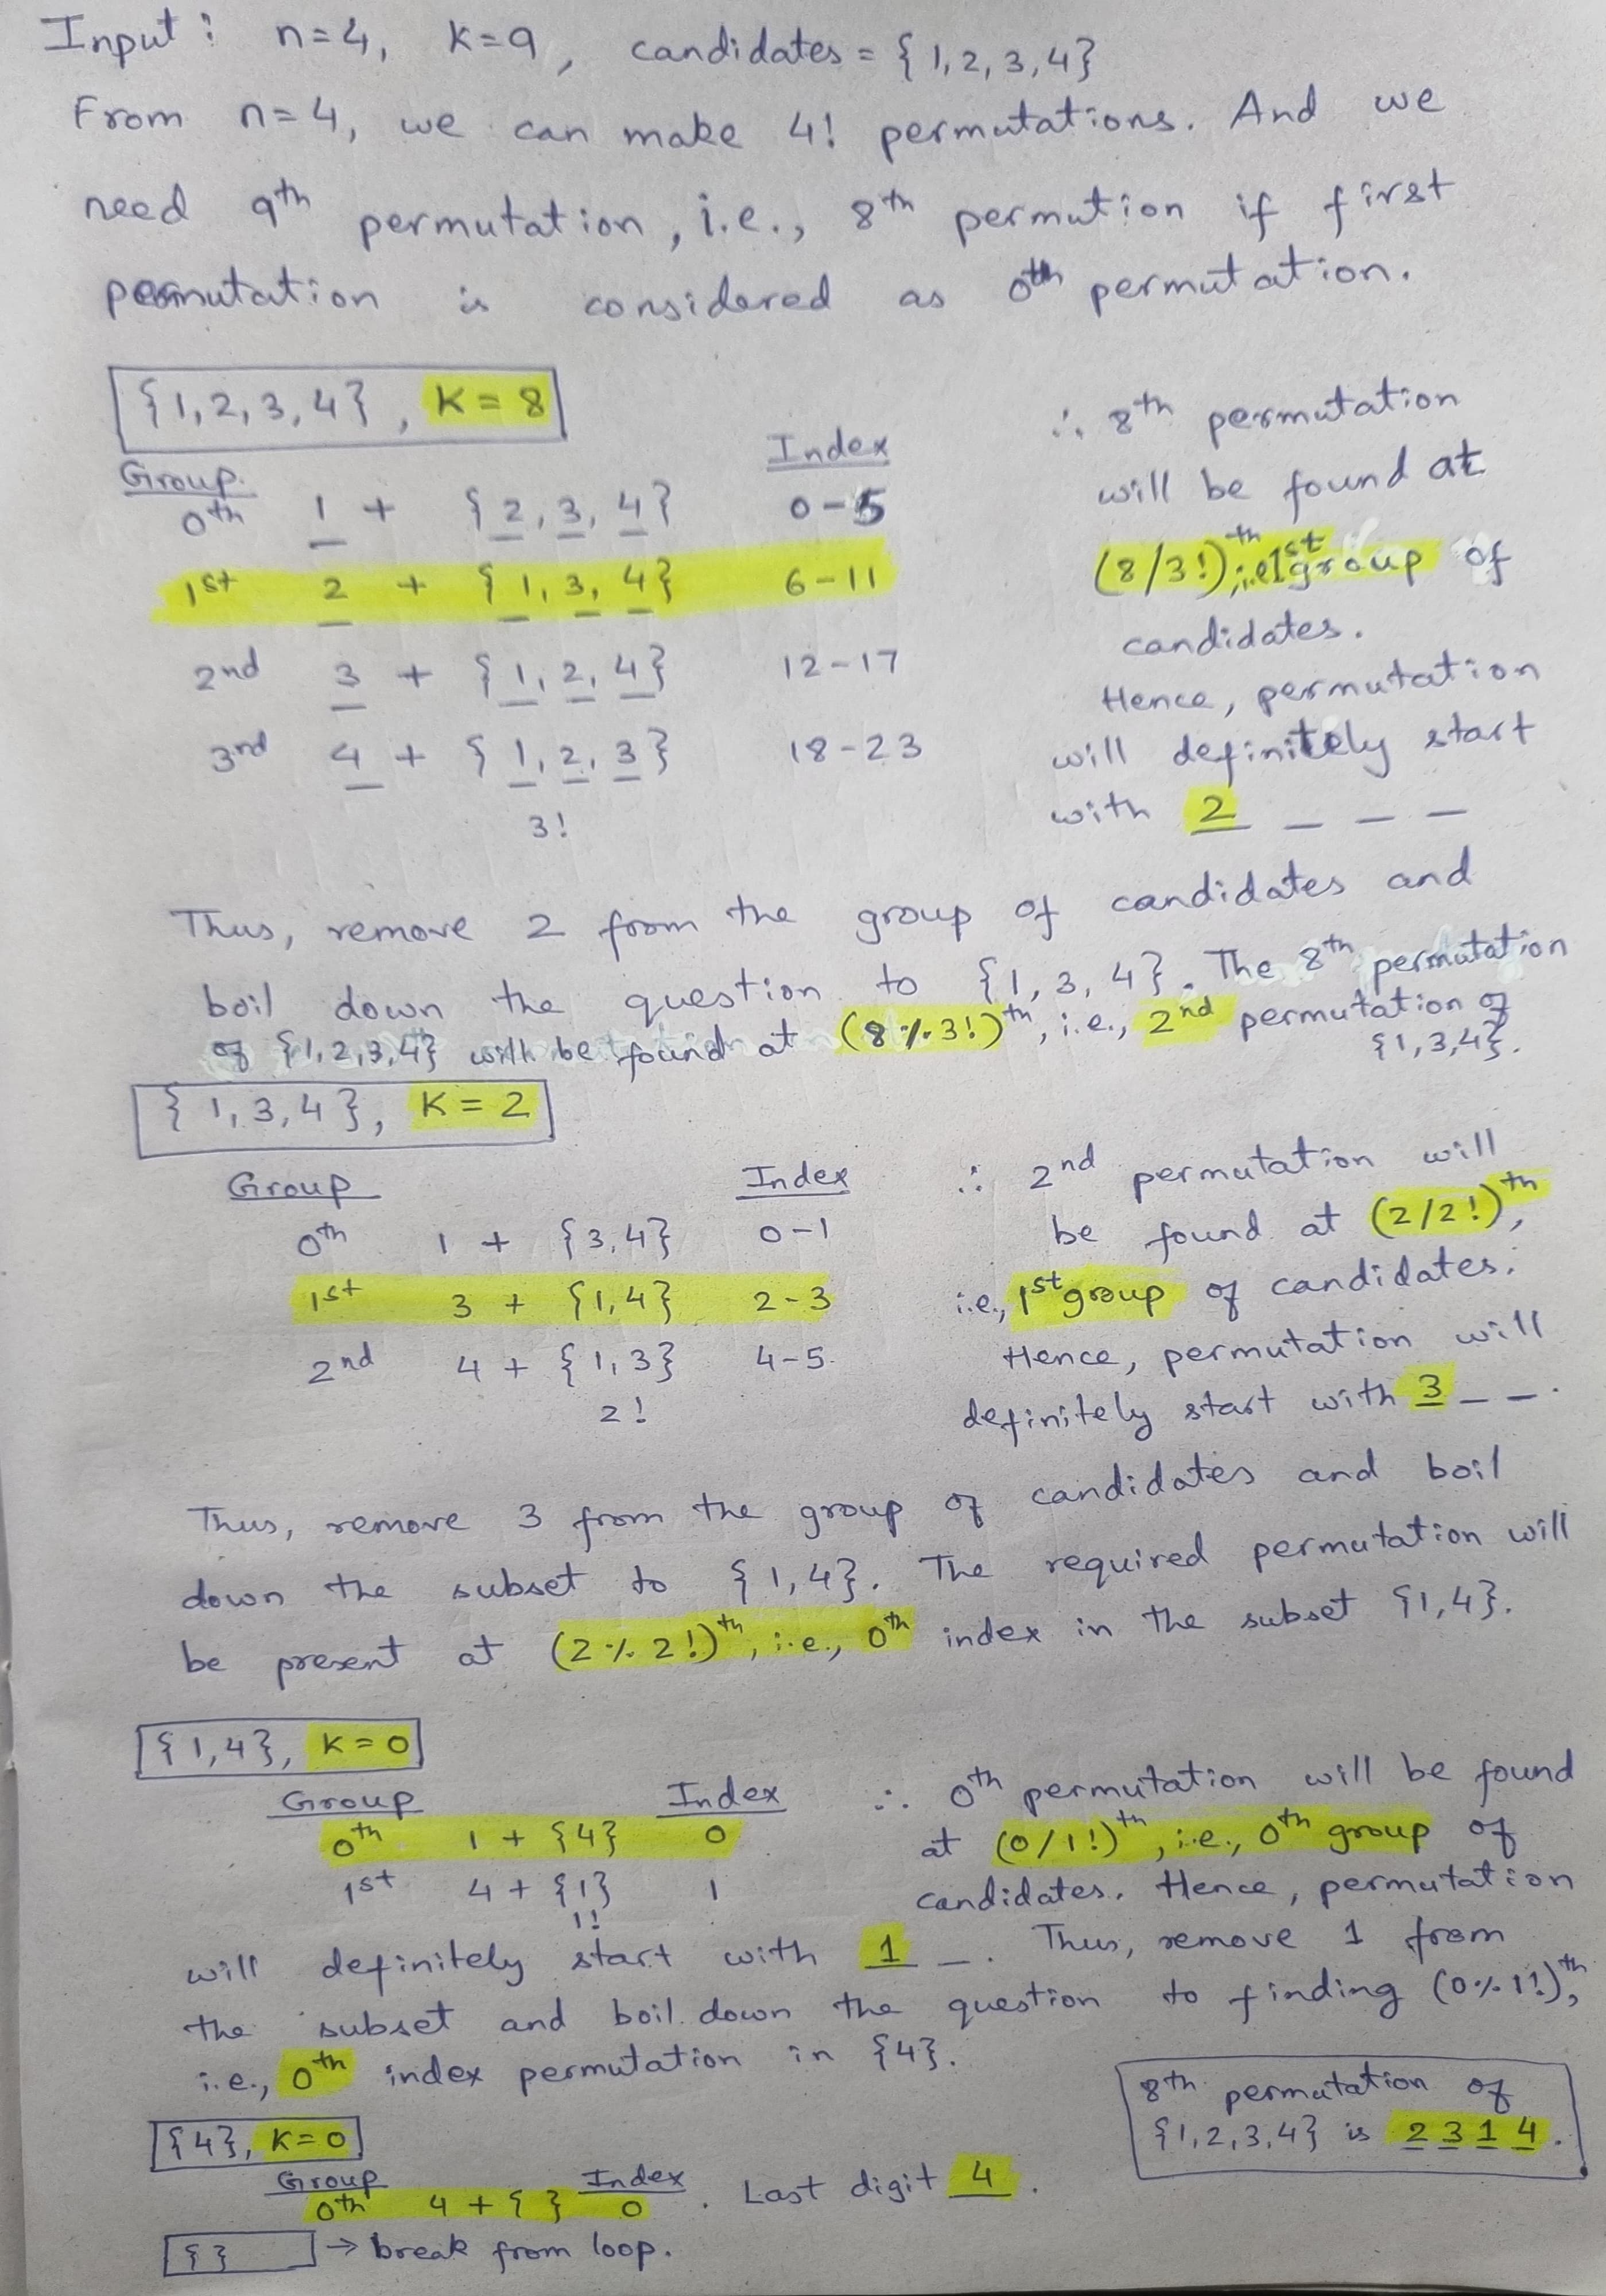 Input: n=4, K=9, candidates = {1,2,3,4}
From n=4, we can make 4! permutations. And we
need 9th permutation, i.e., 8th permution if first
permutation is considered as 0th permutation.
{1,2,3,4}, K=8
Group Index
0th 1 + {2,3,4} 0-5
1st 2 + {1,3,4} 6-11
2nd 3 + {1,2,4} 12-17
3nd 4 + {1,2,3} 18-23
3!
∴ 8th permutation
will be found at
(8/3!)th, i.e 1st group of
candidates.
Hence, permutation
will definitely start
with 2 _ _ _
Thus, remove 2 from the group of candidates and
boil down the question to {1,3,4}. The 8th permutation
of {1,2,3,4} will be found at (8%3!)th, i.e., 2nd permutation of
{1,3,4}.
{1,3,4}, K=2
Group Index
0th 1 + {3,4} 0-1
1st 3 + {1,4} 2-3
2nd 4 + {1,3} 4-5
2!
∴ 2nd permutation will
be found at (2/2!)th,
i.e., 1st group of candidates.
Hence, permutation will
definitely start with 3 _ _.
Thus, remove 3 from the group of candidates and boil
down the subset to {1,4}. The required permutation will
be present at (2%2!)th, i.e., 0th index in the subset {1,4}.
{1,4}, K=0
Group Index
0th 1 + {4} 0
1st 4 + {1} 1
1!
∴ 0th permutation will be found
at (0/1!)th, i.e., 0th group of
candidates. Hence, permutation
will definitely start with 1 _. Thus, remove 1 from
the subset and boil down the question to finding (0%1!)th,
i.e., 0th index permutation in {4}.
{4}, K=0
Group Index
0th 4 + { } 0. Last digit 4.
{ } → break from loop.
8th permutation of
{1,2,3,4} is 2 3 1 4.